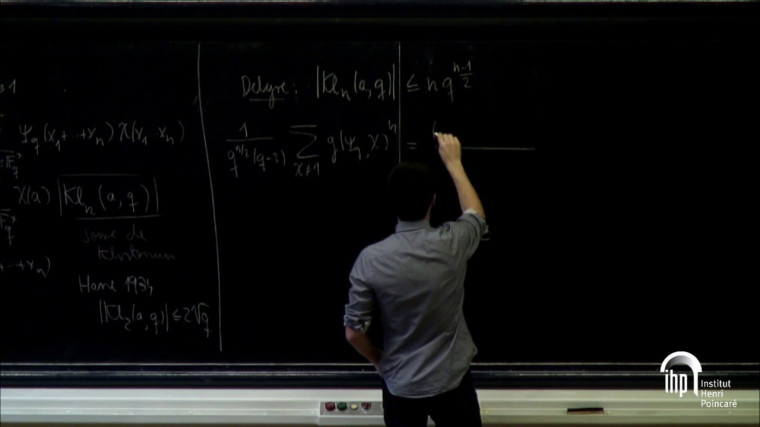 ψ_q(x_1+...+x_n) χ(x_1...x_n)
χ(a) |Kl_n(a,q)|
Somme de
Kloosterman
...+x_n)
|Kl_2(a,q)| ≤ 2√q
Delgne: |Kl_n(a,q)| ≤ n q^{\frac{n-1}{2}}
\frac{1}{q^{n/2}(q-2)} \sum_{χ≠1} g(ψ_q, χ)^n =
ihp
Institut
Henri
Poincaré